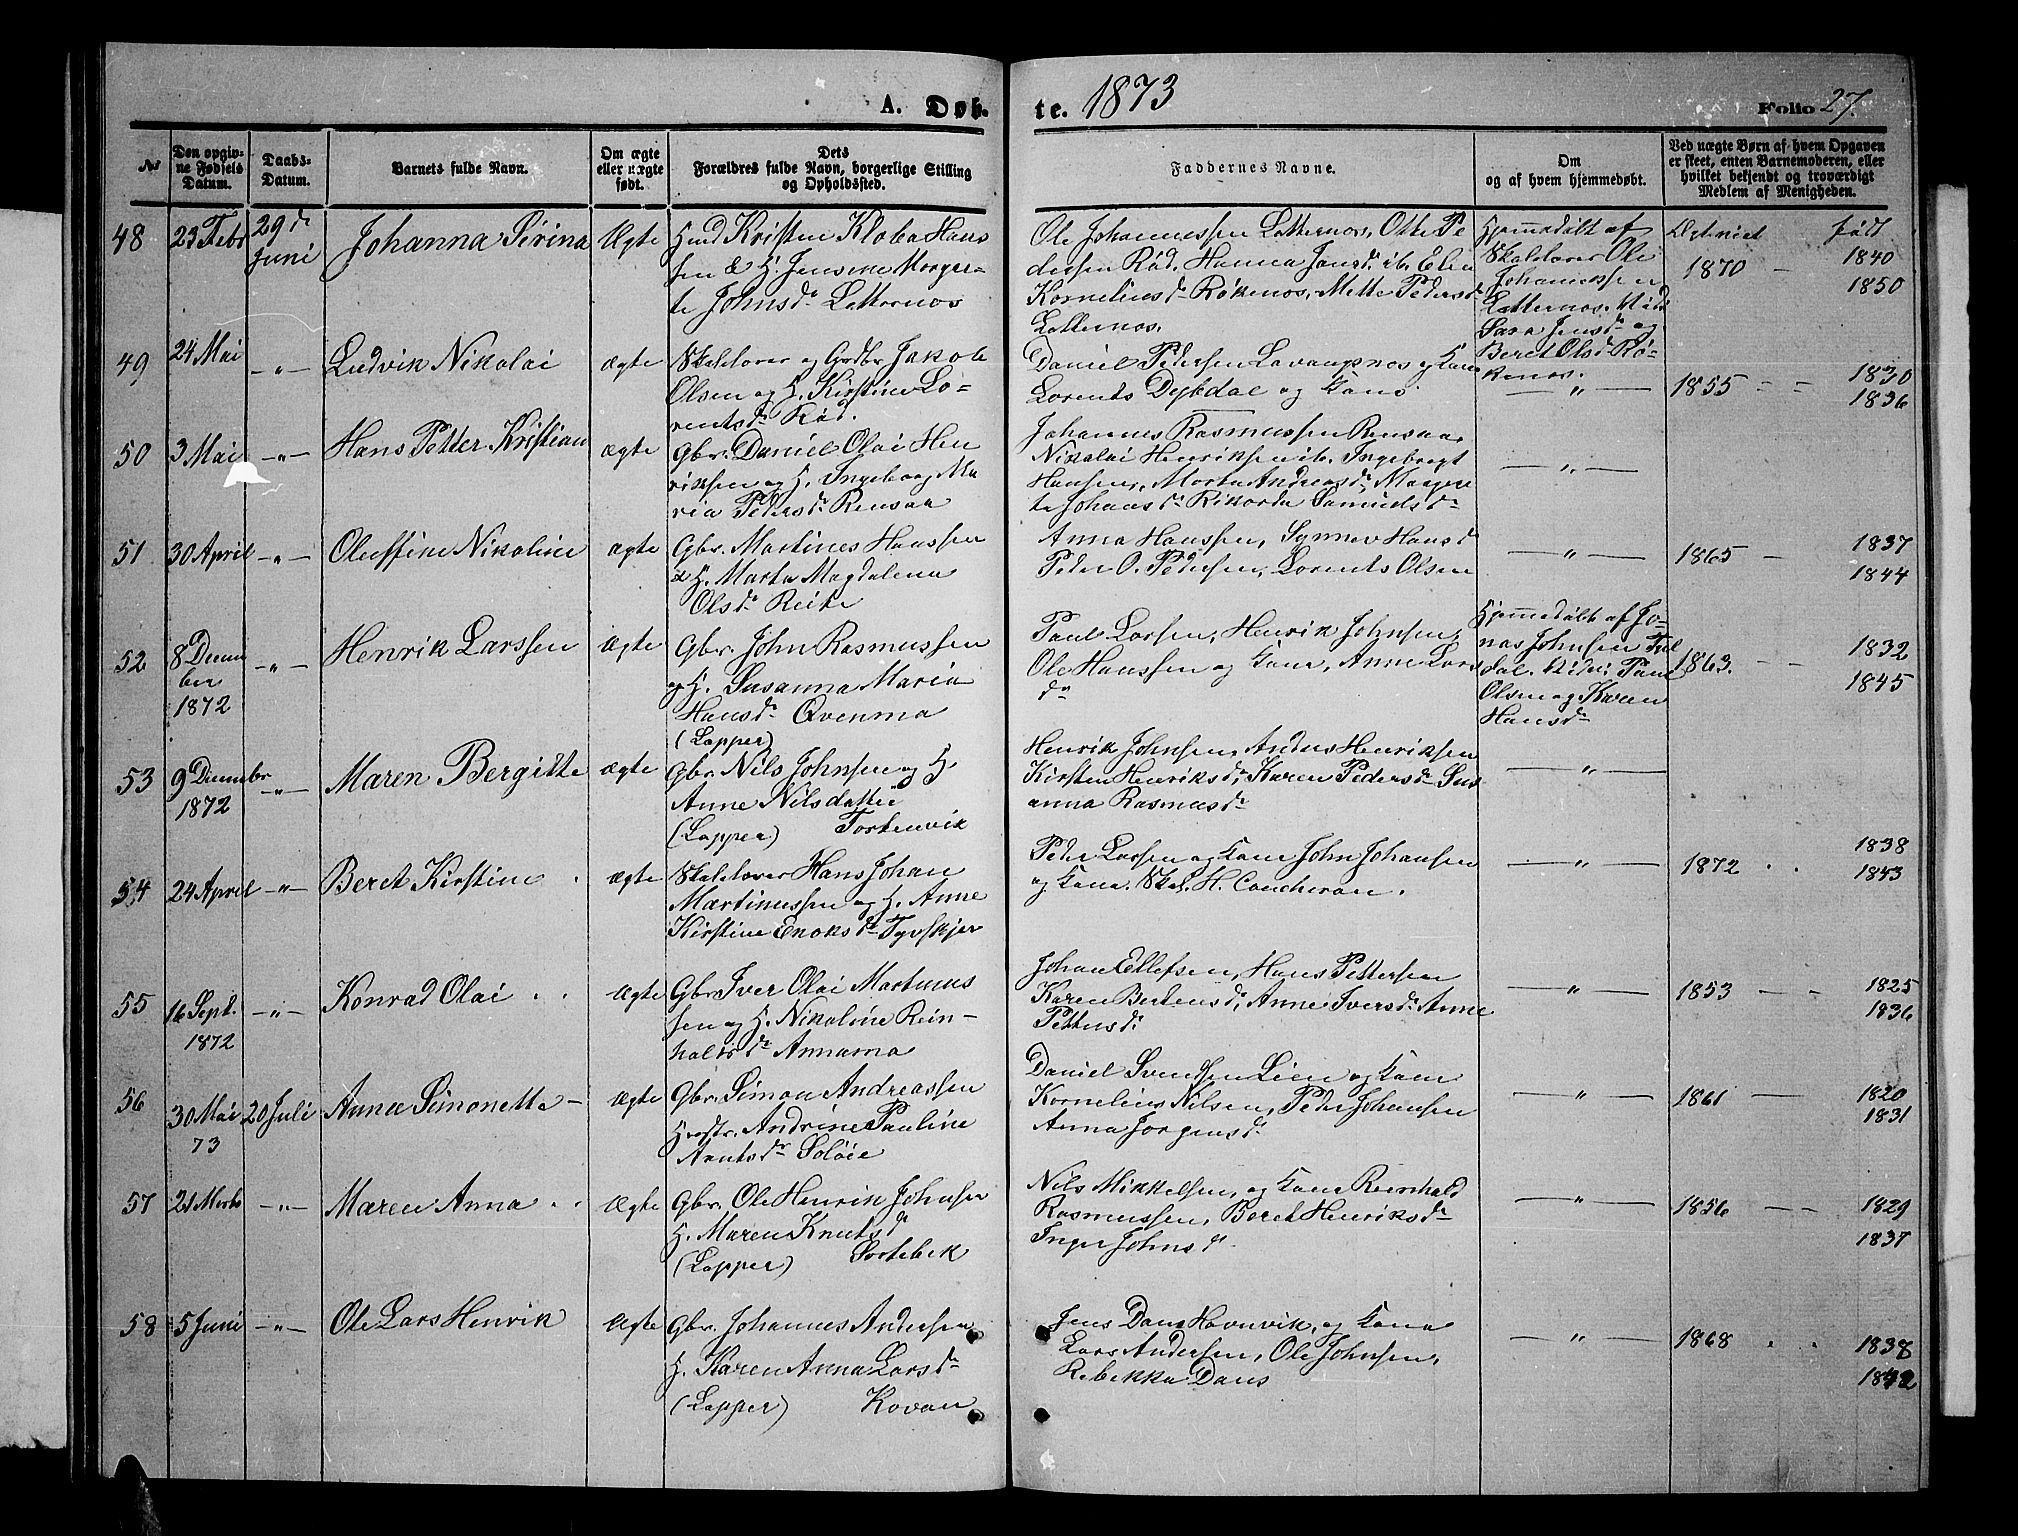 A. Døb-
te. 1873
Folio 27.
№
Den opgiv-
ne Fødsels
Datum.
Daabs-
Datum.
Barnets fulde Navn.
Om ægte
eller uægte
født.
Dets
Forældres fulde Navn, borgerlige Stilling
og Opholdssted.
Faddernes Navne.
Om
og af hvem hjemmedøbt.
Ved uægte Børn af hvem Opgaven
er skeet, enten Barnemoderen, eller
hvilket bekjendt og troværdigt
Medlem af Menigheden.
48 23 Febr 29 de Juni Johanna Serina Ægte
Kristen Hans
sen & H. Jensine Margre-
te Johnsdr Latternos
Ole Johannessen Latternos, Otte Pe
dersen Rød. Hanna Jensdr ib. Elen
Korneliusdr Røkenos, Mette Pedersdr
Latternos.
Hjemmedøbt af
Skolelærer Ole
Latternos.
Sara Jensdr og
Beret Olsdr Rø-
kenos.
født
1870 — 1840
1850
49 24 Mai —„— Ludvik Nikolai ægte
Skolelærer og Jakob
Olsen og H. Kirstine Lo-
rentsdr Rød.
Daniel Pedersen Lavangsnos og Kone
Lorents Dybdal og Kone
—„—
1855 — — 1830
1836
50 3 Mai —„— Hans Petter Kristian ægte
Gbr. Daniel Olai Hen
riksen og H. Ingeborg Ma
ria Pedersdr Rensaa
Johannes Rasmussen Rensaa
Nikolai Henriksen ib. Ingeborgt
Hansen, Marta Andreasdr, Margre
te Johansdr Rikarda Samuelsdr
—„—
51 30 April —„— Oluffine Nikoline ægte
Gbr. Martines Hanssen
& H. Marta Magdalena
Olsdr
Anna Hanssen, Synnev Hansdr
Peder O. Pedersen, Lorents Olsen
—„—
1865 — 1837
1844
52 8 Decem
ber
1872 —„— Henrik Larssen Ægte
Gbr. John Rasmussen
og H. Susanna Maria
Hansdr Qvenma
(Lapper)
Paul Larsen, Henrik Johnsen,
Ole Hanssen og Kone, Anne Lars
dr
Hjemmedøbt af Jo-
nas Johnsen
Paul
Olsen og Karen
Hansdr
1863. — — 1832
1845
53 9 Decembr
1872 —„— Maren Bergitte ægte
Gbr. Nils Johnsen og H.
Anne Nilsdatter
(Lapper)
Henrik Johnsen, Anders Henriksen
Kirsten Henriksdr, Karen Pedersdr Sus
anna Rasmusdr
—„—
54 24 April —„— Beret Kirstine ægte
Skolelærer Hans Johan
Martinussen og H. Anne
Kirstine Enoksdr
Peder Larsen og Kone John Johansen
og Kone. Skol. H.
—„—
1872 1838
1843
55 16 Sept.
1872 —„— Konrad Olai Ægte
Gbr. Iver Olai Martinus
sen og H. Nikoline Rein-
haltsdr Annama
Johan Ellefsen, Hans Pettersen
Karen Berteusdr, Anne Iversdr Anne
Pettersdr
—„—
1853 — — 1825
1836
56 30 Mai
73 20 Juli Anna Simonetta — Ægte
Gbr. Simon Andreassen
Hustr. Andrine Pauline
Arntsdr Soløie
Daniel Svendsen Lien og Kone
Kornelius Nilsen, Peder Johansen
Anna Jorgensdr
—„—
1861 — 1820
1831
57 21 Marts —„— Maren Anna Ægte
Gbr. Ole Henrik Johnsen
H. Maren Knutsdr
(Lapper)
Nils Mikkelsen, og Kone Reinhold
Rasmussen, Beret Henriksdr
Inger Johnsdr
—„—
1856 — — 1829
1837
58 5 Juni —„— Ole Lars Henrik Ægte
Gbr. Johannes Andersen
H. Karen Anna Larsdr
(Lapper) Kovan
Jens Dans Havnvik, og Kone
Lars Andersen, Ole Johnsen,
Rebekka Dans
—„—
1868 1838
1842